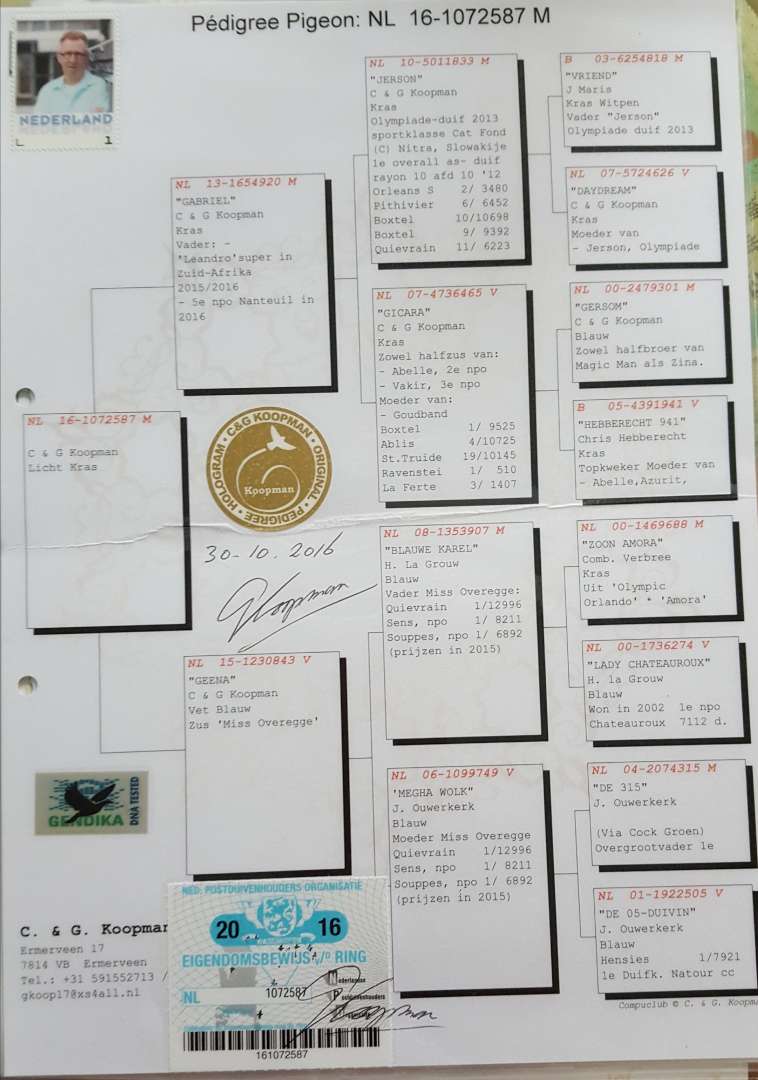 Pédigree Pigeon: NL 16-1072587 M
NEDERLAND
1
NL 16-1072587 M
C & G Koopman
Licht Kras
NL 13-1654920 M
"GABRIEL"
C & G Koopman
Kras
Vader: -
'Leandro'super in
Zuid-Afrika
2015/2016
- 5e npo Nanteuil in
2016
NL 15-1230843 V
"GEENA"
C & G Koopman
Vet Blauw
Zus 'Miss Overegge'
NL 10-5011833 M
"JERSON"
C & G Koopman
Kras
Olympiade-duif 2013
sportklasse Cat Fond
(C) Nitra, Slowakije
1e overall as- duif
rayon 10 afd 10 '12
Orleans S 2/ 3480
Pithivier 6/ 6452
Boxtel 10/10698
Boxtel 9/ 9392
Quievrain 11/ 6223
NL 07-4736465 V
"GICARA"
C & G Koopman
Kras
Zowel halfzus van:
- Abelle, 2e npo
- Vakir, 3e npo
Moeder van:
- Goudband
Boxtel 1/ 9525
Ablis 4/10725
St.Truide 19/10145
Ravenstei 1/ 510
La Ferte 3/ 1407
NL 08-1353907 M
"BLAUWE KAREL"
H. La Grouw
Blauw
Vader Miss Overegge:
Quievrain 1/12996
Sens, npo 1/ 8211
Souppes, npo 1/ 6892
(prijzen in 2015)
NL 06-1099749 V
'MEGHA WOLK"
J. Ouwerkerk
Blauw
Moeder Miss Overegge
Quievrain 1/12996
Sens, npo 1/ 8211
Souppes, npo 1/ 6892
(prijzen in 2015)
B 03-6254818 M
"VRIEND"
J Maris
Kras Witpen
Vader "Jerson"
Olympiade duif 2013
NL 07-5724626 V
"DAYDREAM"
C & G Koopman
Kras
Moeder van
- Jerson, Olympiade
NL 00-2479301 M
"GERSOM"
C & G Koopman
Blauw
Zowel halfbroer van
Magic Man als Zina.
B 05-4391941 V
"HEBBERECHT 941"
Chris Hebberecht
Kras
Topkweker Moeder van
- Abelle,Azurit,
NL 00-1469688 M
"ZOON AMORA"
Comb. Verbree
Kras
Uit 'Olympic
Orlando' * 'Amora'
NL 00-1736274 V
"LADY CHATEAUROUX"
H. la Grouw
Blauw
Won in 2002 1e npo
Chateauroux 7112 d.
NL 04-2074315 M
"DE 315"
J. Ouwerkerk
(Via Cock Groen)
Overgrootvader 1e
NL 01-1922505 V
"DE 05-DUIVIN"
J. Ouwerkerk
Blauw
Hensies 1/7921
1e Duifk. Natour cc
Compuclub © C. & G. Koopma
HOLOGRAM • C&G KOOPMAN • ORIGINAL • PEDIGREE •
Koopman
30-10. 2016
GKoopman
GENDIKA
DNA TESTED
C. & G. Koopman
Ermerveen 17
7814 VB Ermerveen
Tel.: +31 591552713 /
gkoop178xs4all.nl
NED. POSTDUIVENHOUDERS ORGANISATIE
20 16
EIGENDOMSBEWIJS v/d RING
NL 1072587
161072587